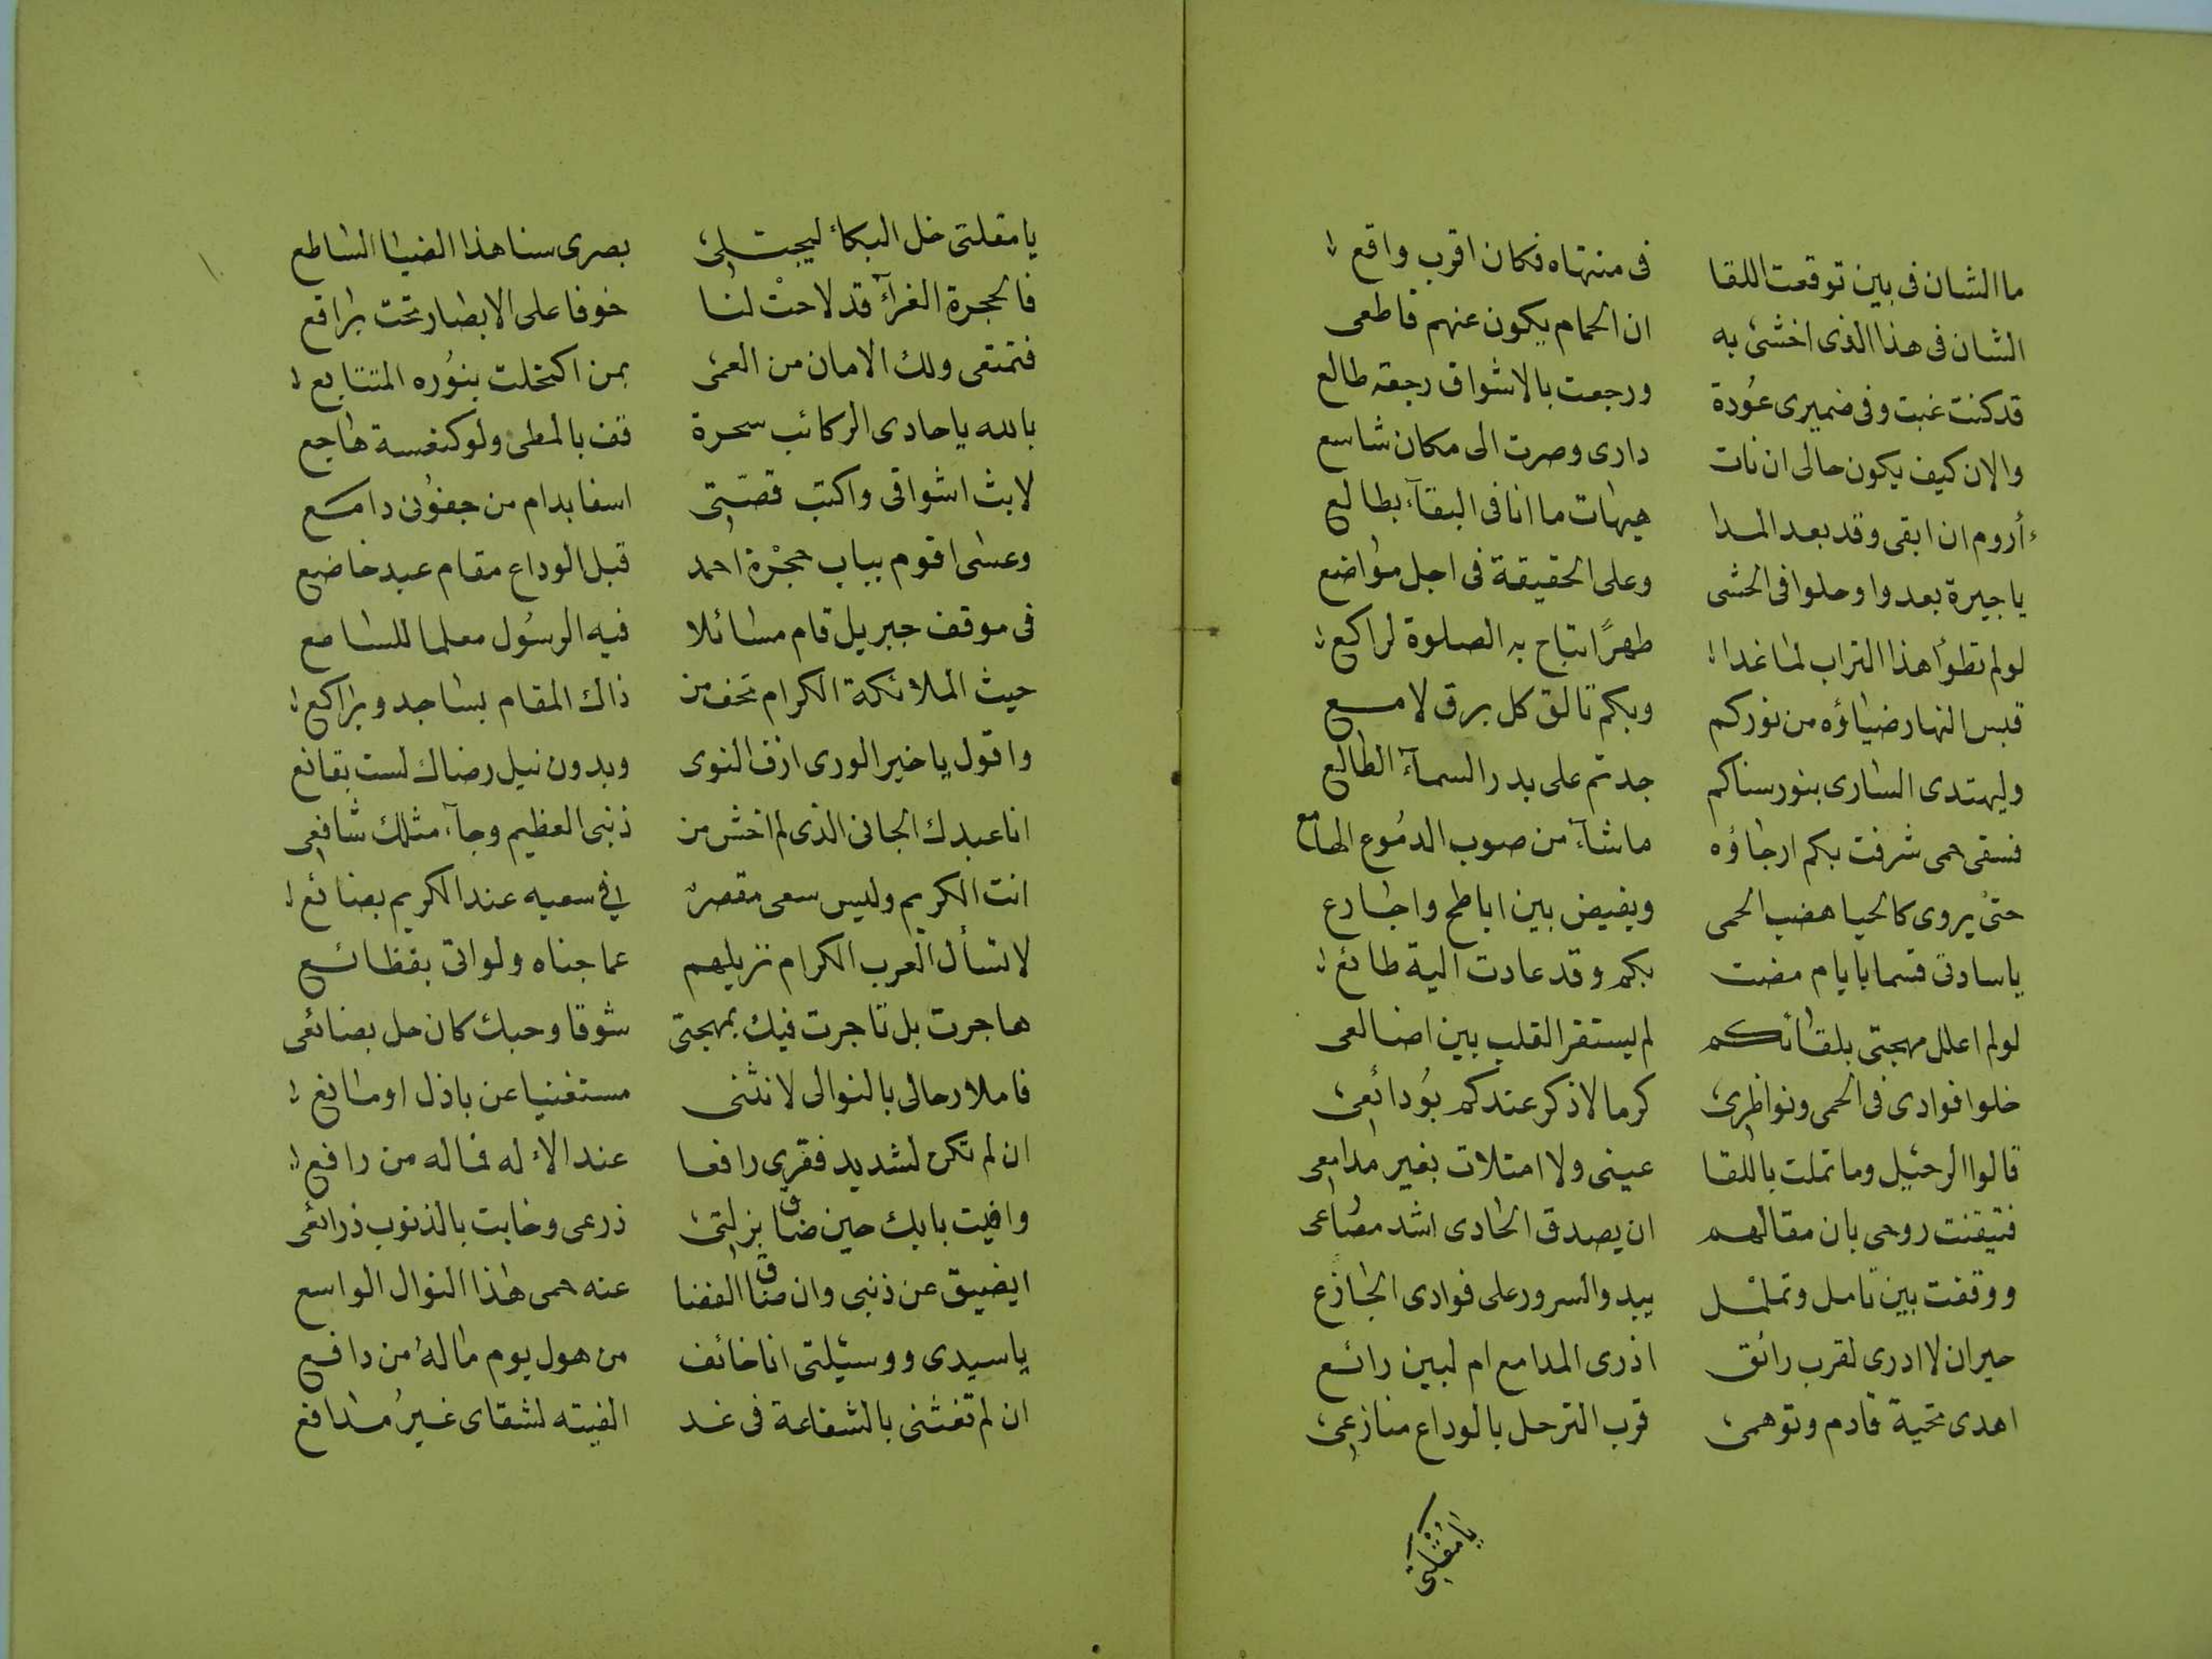 ما الشان فى بين توقعت اللقا فى منتهاه فكان اقرب واقع
الشان فى هذا الذى اخشى به ان الحمام يكون عنهم قاطعى
قد كنت غبت وفى ضميرى عودة ورجعت بالاشواق رجعة طالع
والان كيف يكون حالى ان نات دارى وصرت الى مكان شاسع
أروم ان ابقى وقد بعد المدا هيهات ما انا فى البقآء بطالع
يا جيرة بعدوا وحلوا فى الحشى وعلى الحقيقة فى اجل مواضع
لو لم تطؤا هذا التراب لما غدا طهرًا تباح به الصلوة لراكع
قبس النهار ضياؤه من نوركم وبكم تالق كل برق لامع
وليهتدى السارى بنور سناكم جدتم على بدر السمآء الطالع
فسقى حمى شرفت بكم ارجاؤه ماشآء من صوب الدموع الهامع
حتى يروى كالحيا هضب الحمى ويفيض بين اباطح واجارع
يا سادتى قسما بايام مضت بكم وقد عادت الية طائع
لو لم اعلل مهجتى بلقائكم لم يستقر القلب بين اضالعى
خلوا فوادى فى الحمى ونواظرى كرما لاذكر عندكم بودائعى
قالوا الرحيل وما تملت باللقا عينى ولا امتلات بغير مدامعى
فتيقنت روحى بان مقالهم ان يصدق الحادى اشد مصاعى
ووقفت بين تامل وتململ يبدو السرور على فوادى الجازع
حيران لا ادرى لقرب رائق اذرى المدامع ام لبين رائع
اهدى تحية قادم وتوهمى قرب الترحل بالوداع منازعى
يا مقلتى
يا مقلتى خل البكاء ليجتلى بصرى سنا هذا الضيا الساطع
فالحجرة الغرآء قد لاحت لنا خوفا على الابصار تحت براقع
فتمتعى ولك الامان من العمى بمن اكتحلت بنوره المتتابع
بالله يا حادى الركائب سحرة قف بالمطى ولو كنغسة هاجع
لابث اشواقى واكتب قصّتى اسفا بدام من جفونى دامع
وعسى اقوم بباب حجرة احمد قبل الوداع مقام عبد خاضع
فى موقف جبريل قام مسائلا فيه الرسول معلما للسامع
حيث الملائكة الكرام تحف من ذاك المقام بساجد وبراكع
واقول يا خير الورى ازف النوى وبدون نيل رضاك لست بقانع
انا عبدك الجانى الذى لم اخش من ذنبى العظيم وجآء مثلك شافعى
انت الكريم وليس سعى مقصر فى سعيه عند الكريم بضائع
لا تسأل العرب الكرام نزيلهم عما جناه ولو اتى بفظائع
هاجرت بل تاجرت فيك بمهجتى شوقا وحبك كان حل بضائعى
فاملا رحالى بالنوالى لانثنى مستغنيا عن باذل او مانع
ان لم تكن لشديد فقرى رافعا عند الاله فما له من رافع
وافيت بابك حين ضاق بزلتى ذرعى وخابت بالذنوب ذرائعى
ايضيق عن ذنبى وان ضاق الفضا عنه حمى هذا النوال الواسع
يا سيدى ووسيلتى انا خائف من هول يوم ماله من دافع
ان لم تغثنى بالشفاعة فى غد الفيته لشقاى غير مدافع